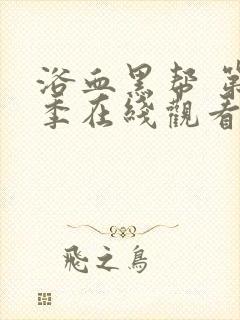 浴血黑帮 第
季在线觀看
飛之鳥